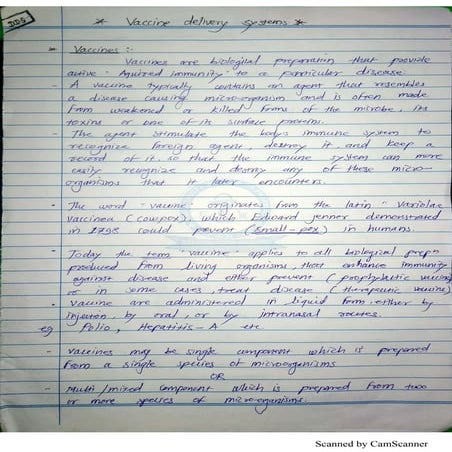 DDS
* Vaccine delivery systems *
* Vaccines :-
Vaccines are biological preparation that provide
active "Aquired immunity" to a particular disease
- A vaccine typically contains an agent that resembles
a disease causing micro-organism and is often made
from weakened or killed forms of the microbe, its
toxins or one of its surface proteins.
- The agent stimulate the body's immune system to
recognize foreign agent, destroy it and keep a
record of it. so that the immune system can more
easily recognize and destroy any of these micro-
organisms that it later encounters.
- The word "vaccine" originates from the latin "Variolae
vaccinea (cowpox), which Edward jenner demonstrated
in 1798 could prevent (small-pox) in humans.
- Today the term "vaccine" applies to all biological prepn
produced from living organisms, that enhance immunity
against disease and either prevent (prophylactic vaccine)
or in some cases, treat disease (therapeutic vaccine)
- Vaccine are administered in liquid form, either by
injection, by oral, or by intranasal routes.
eg Polio, Hepatitis-A etc
- Vaccines may be single component which is prepared
from a single species of microorganisms
OR
- Multi/mixed component which is prepared from two
or more species of micro-organisms.
Scanned by CamScanner